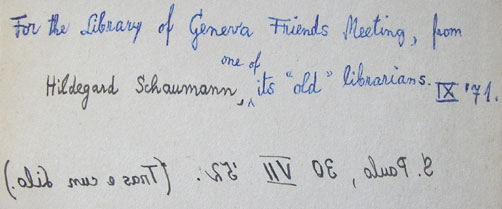 For the Library of Geneva Friends Meeting, from
Hildegard Schaumann, one of its "old" librarians. IX '71.
S. Paulo, 30 VII '52.